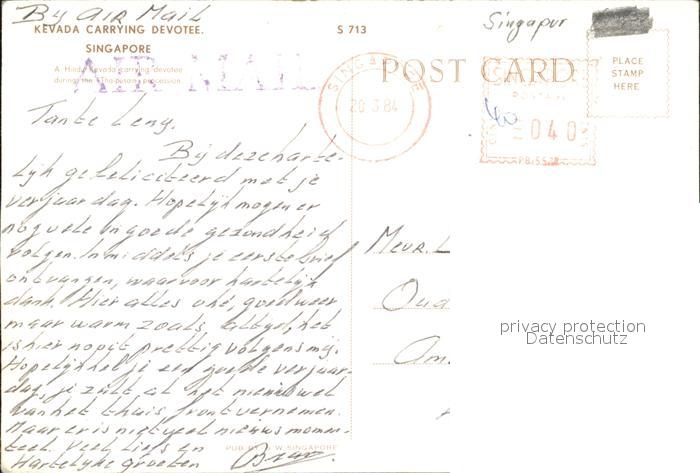 By AIR MAIL
KEVADA CARRYING DEVOTEE.
SINGAPORE
A Hindu Kevada carrying devotee
during the Thaipusam procession.
AIR MAIL
S 713
Singapur
POST CARD
PLACE
STAMP
HERE
SINGAPORE
20 3 84
040
PB.SS.
Tante Leny.
Bij deze harte-
lijk gefeliciteerd met je
verjaardag. Hopelijk mogen er
nog vele in goede gezondheid
volgen. Inmiddels je eerste brief
ontvangen, waarvoor hartelijk
dank. Hier alles oké, goed weer
maar warm zoals altyd, het
is hier nooit prettig volgens mij.
Hopelijk heb je een goede verjaar-
dag, je zult al het nieuws wel
van het thuis front vernemen.
Maar er is niet veel nieuws momen-
teel. Veel liefs en
Hartelyke groeten
PUB. BY W. SINGAPORE
Mevr. L
Oud
Am.
privacy protection
Datenschutz